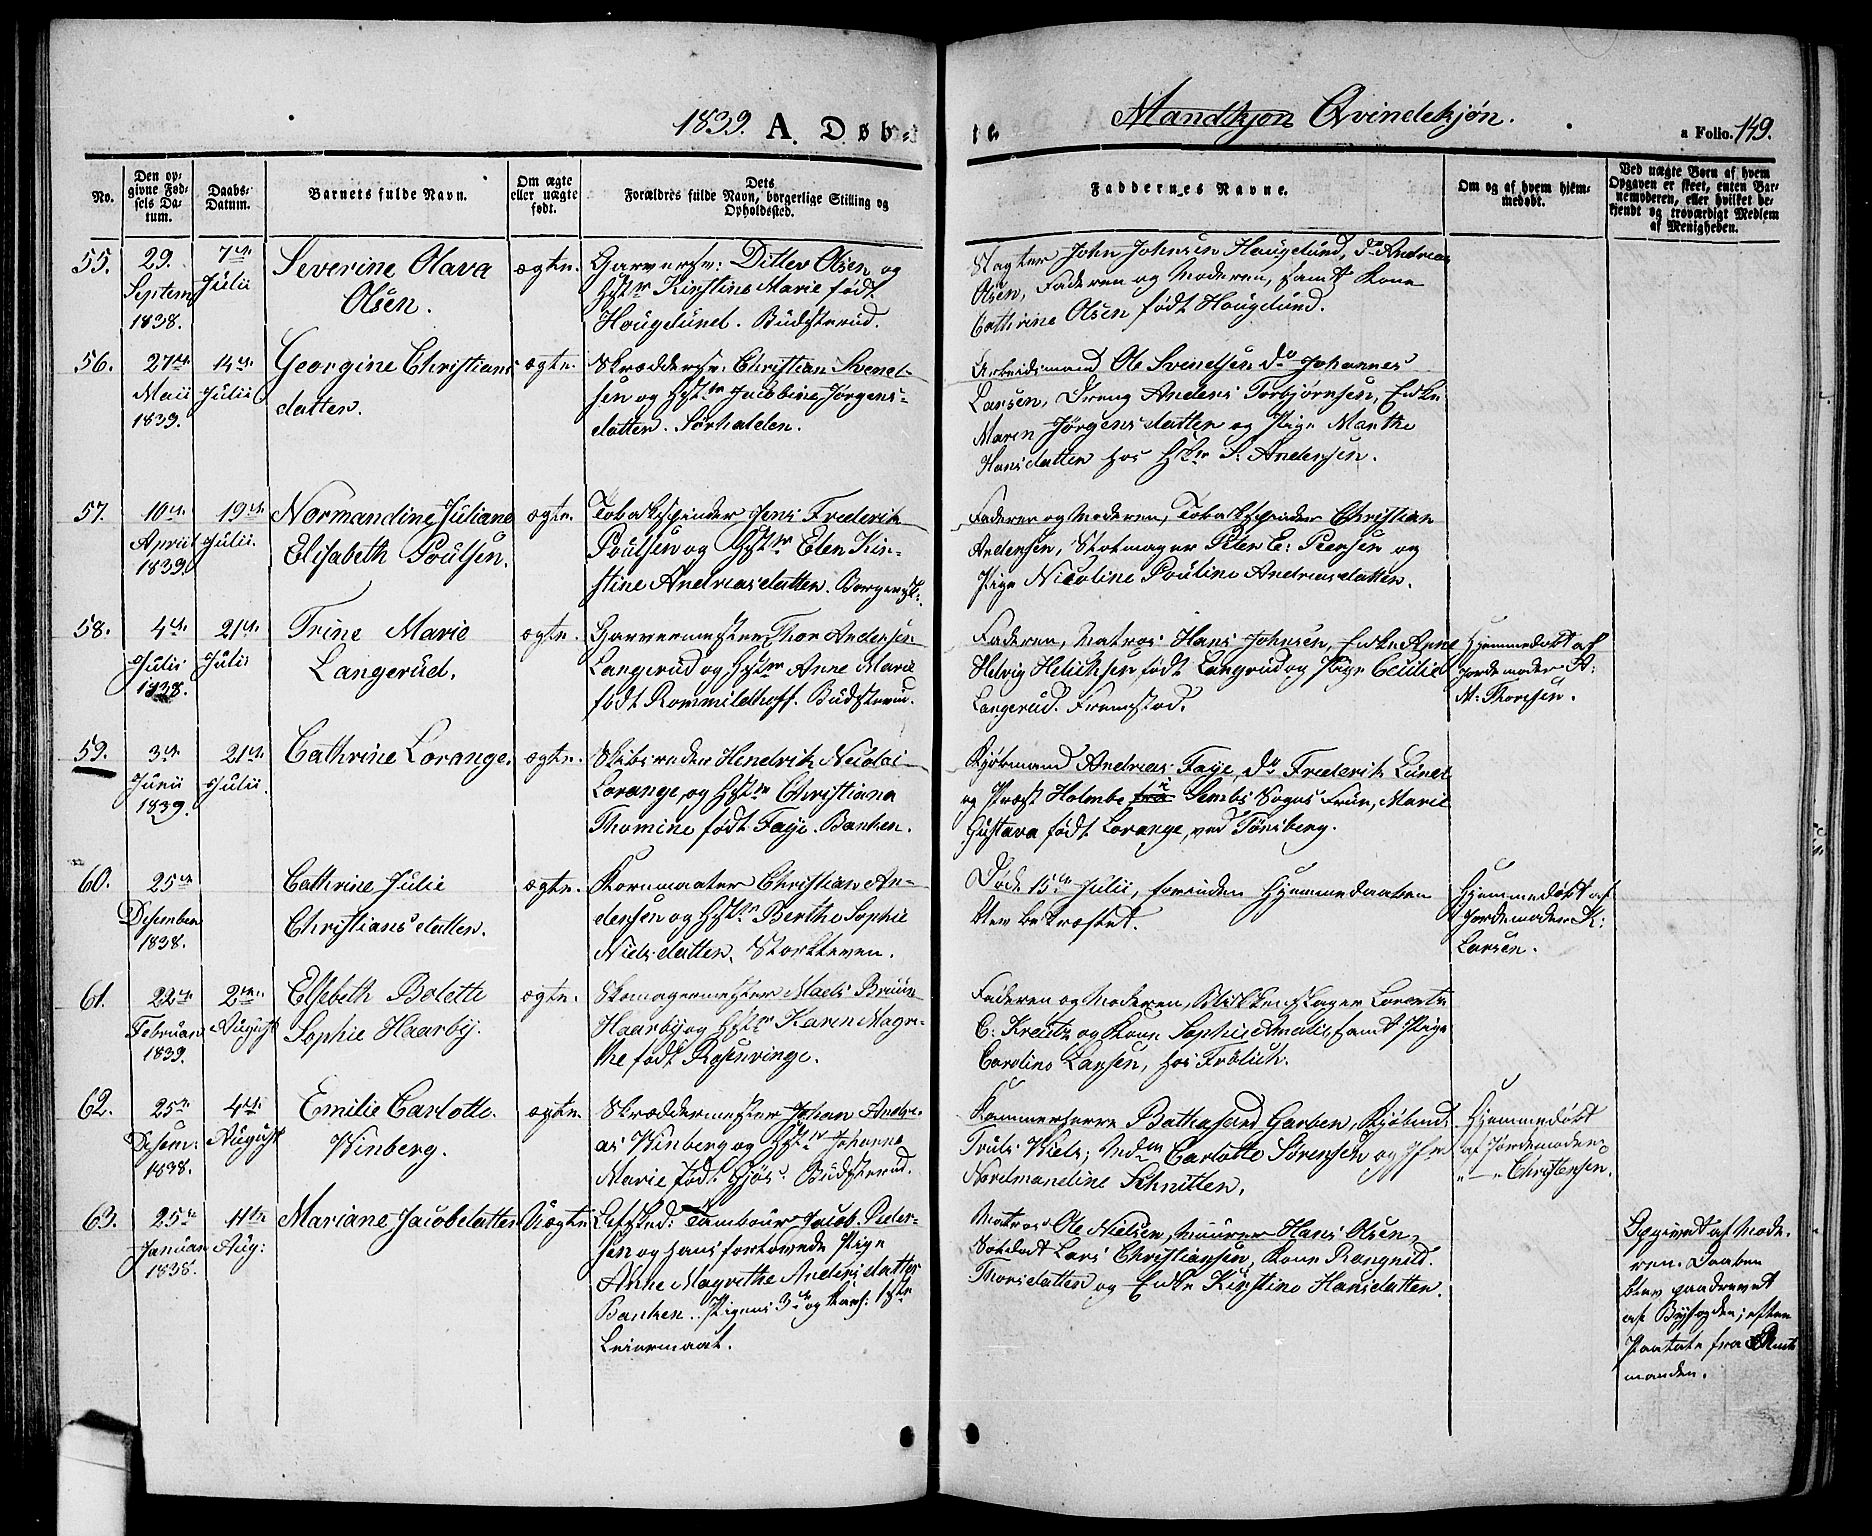 1839. A. Døbte
Mandkjøn Qvindekjøn.
a Folio. 149.
No.
Den opgivne Fødsels Datum.
Daabs-Datum.
Barnets fulde Navn.
Om ægte eller uægte født.
Dets Forældres fulde Navn, borgerlige Stilling og Opholdssted.
Faddernes Navne.
Om og af hvem hjemmedøbt.
Ved uægte Børn af hvem Opgaven er skeet, enten Barnemoderen, eller hvilket bekjendt og troværdigt Medlem af Menigheden.
55.
29.
Septem
1838.
7de
Julii
Severine Olava
Olsen.
ægte.
Garversv: Ditlev Olsen og
Hstr Kirstine Marie født
Hougelund. Budsterud.
Slagter John Johnsen Hougelund, do Andreas
Olsen, Faderen og Moderen, samt Kone
Cathrine Olsen født Hougelund.
56.
27de
Maii
1839.
14de
Julii
Georgine Christians
datter.
ægte.
Skræddersv: Christian Svend-
sen og Hstr Jacobine Jørgens-
datter. Sørhalden.
Arbeidsmand Ole Svendsen do Johannes
Larsen, Dreng Anders Torbjørnsen, Enke
Maren Jørgensdatter og Pige Marthe
Hansdatter hos Hr S. Andersen.
57.
10de
April
1839.
19de
Julii.
Normandine Juliane
Elisabeth Poulsen.
ægte.
Tobakspinder Jens Frederik
Poulsen og Hstr Elen Kir-
stine Andreasdatter. Borgergt:
Faderen og Moderen, Tobakspinder Christian
Andersen, Skomager Peter E: Peersen og
Pige Nicoline Pouline Andreasdatter.
58.
4de
Julii
1838.
21de
Julii
Trine Marie
Langerud.
ægte.
Garvermester Thor Andersen
Langerud og Hstr Anne Marie
født Rommeldhoff. Budsterud.
Faderen, Matros Hans Johnsen, Enke Anne
Helvig Henriksen født Langrud og Pige Cecilie
Langerud. Fremstod.
Hjemmedøbt af
Jordemoder A:
M: Thoresen.
59.
3de
Junii
1839.
21de
Julii.
Cathrine Lorange.
ægte.
Skibsreder Hendrik Nicolai
Lorange, og Hstr Christiana
Thomine født Faye. Banken.
Kjøbmand Andreas Faye, do Frederik Lund
og Præst Holmboe fra i Sembs Sogns Frue, Marie
Gustava født Lorange, ved Tønsberg.
60.
25de
Desember
1838.
Cathrine Julie
Christiansdatter.
ægte.
Kornmaaler Christian An-
dersen og Hstr Berthe Sophie
Nielsdatter. Storkleven.
Døde 15de Julii, forinden Hjemmedaaben
blev bekræftet.
Hjemmedøbt af
Jordemoder K:
Larsen.
61.
22de
Februar
1839.
2den
August
Elsebeth Bolette
Sophie Haarby.
ægte.
Skomagermester Mads Bruun
Haarby og Hstr Karen Magre-
the født Rosenvinge.
Faderen og Moderen, Blikkenslager Lorentz
C: Kreutz og Kone Sophie Amalie, samt Pige
Caroline Larsen, hos Frölich.
62.
25de
Desem:
1838.
4de
August
Emilie Carlotte
Winberg.
ægte.
Skræddermester Johan Andre-
as Winberg og Hstr Johanne
Marie født Gjøs. Budsterud.
Kammerherre Balthasard Garben, Kjøbmd
Truls Wiels, Madm Carlotte Sörensen og Jfr
Nordmandine Schnitler.
Hjemmedøbt
af Jordemoder
"—" Christensen.
63.
25de
Januar
1838.
11te
Aug:
Mariane Jacobsdatter
Uægte
Afsked: Tambour Jacob Peder-
sen og hans forlovede Pige
Anne Magrethe Andersdatter
Banken. Pigens 3de og Karl: 1ste
Leiermaal.
Matros Ole Nielsen, Muurer Hans Olsen,
Soldat Lars Christiansen, Kone Rangnild
Thorsdatter og Enke Kirstine Hansdatter.
Opgivet af Mode-
ren. Daaben
blev paadrevet
af Byfogden, efter
Paatale fra Amt-
manden.